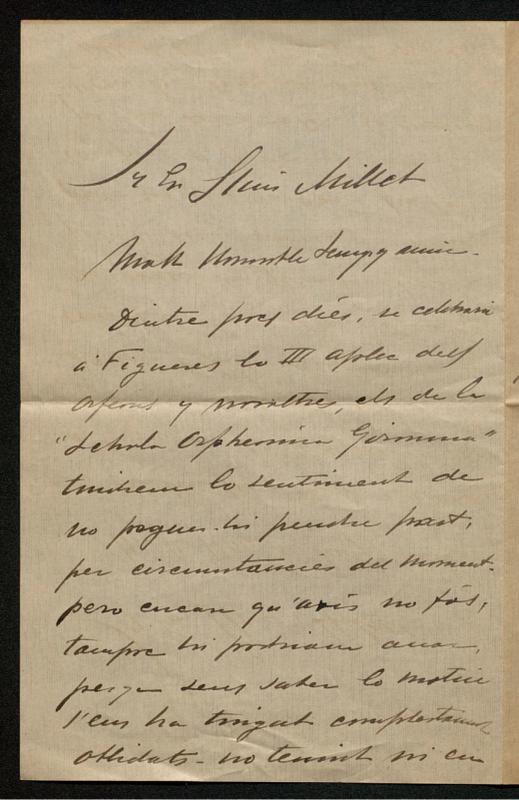 Sr En Lluis Millet
Molt Honorable Senyor amic.
Dintre pocs diés, se celebrará
á Figueres lo III aplec dels
orfeons y nosaltres, els de la
"Schola Orpheonica Gironina"
tindrem lo sentiment de
no poguer-hi pendre part,
per circumstancies del moment.
pero encara qu'axis no fós,
tampoc hi podriam anar,
perque sens saber lo motiu
s'ens ha tingut complertament
oblidats - no tenint ni en